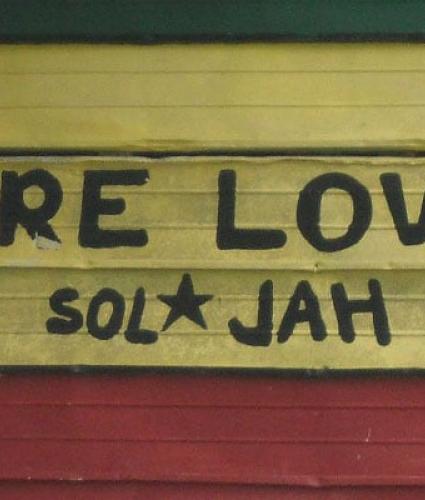 RE LOV
SOL★JAH